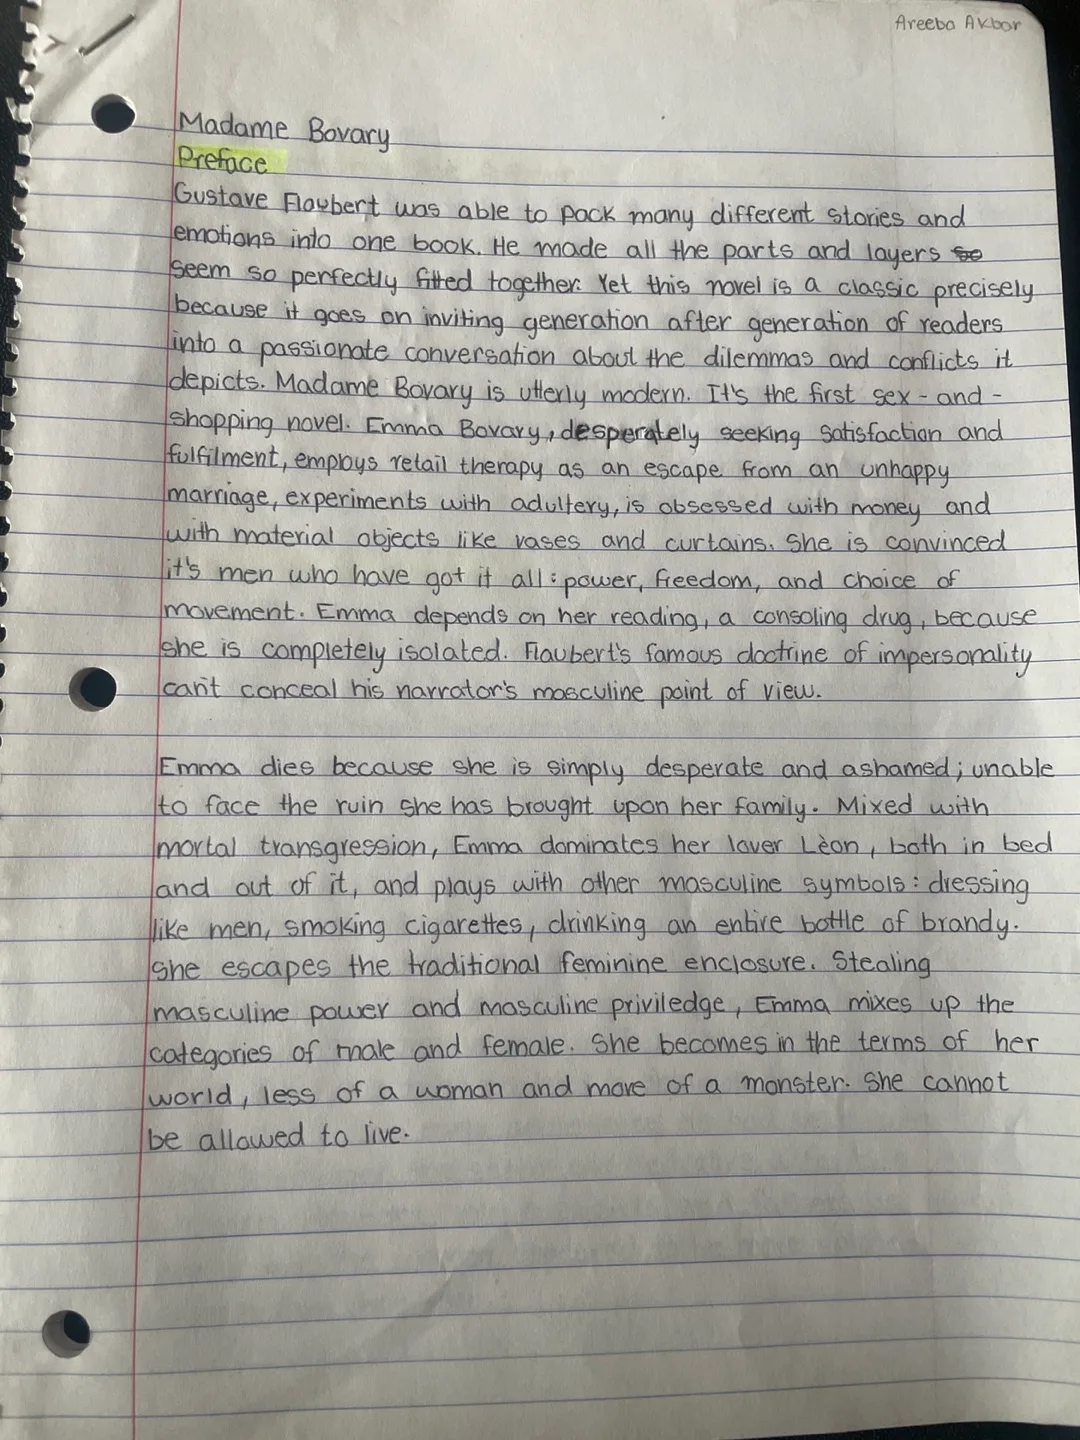 Areeba Akbar
Madame Bovary
Preface
Gustave Flaubert was able to pack many different stories and
emotions into one book. He made all the parts and layers so
seem so perfectly fitted together. Yet this novel is a classic precisely
because it goes on inviting generation after generation of readers
into a passionate conversation about the dilemmas and conflicts it
depicts. Madame Bovary is utterly modern. It's the first sex-and-
shopping novel. Emma Bovary, desperately seeking satisfaction and
fulfilment, employs retail therapy as an escape from an unhappy
marriage, experiments with adultery, is obsessed with money and
with material objects like vases and curtains. She is convinced
it's men who have got it all: power, freedom, and choice of
movement. Emma depends on her reading, a consoling drug, because
she is completely isolated. Flaubert's famous doctrine of impersonality
can't conceal his narrator's masculine point of view.
Emma dies because she is simply desperate and ashamed; unable
to face the ruin she has brought upon her family. Mixed with
mortal transgression, Emma dominates her lover Lèon, both in bed
and out of it, and plays with other masculine symbols: dressing
like men, smoking cigarettes, drinking an entire bottle of brandy.
She escapes the traditional feminine enclosure. Stealing
masculine power and masculine priviledge, Emma mixes up the
categories of male and female. She becomes in the terms of her
world, less of a woman and more of a monster. She cannot
be allowed to live.